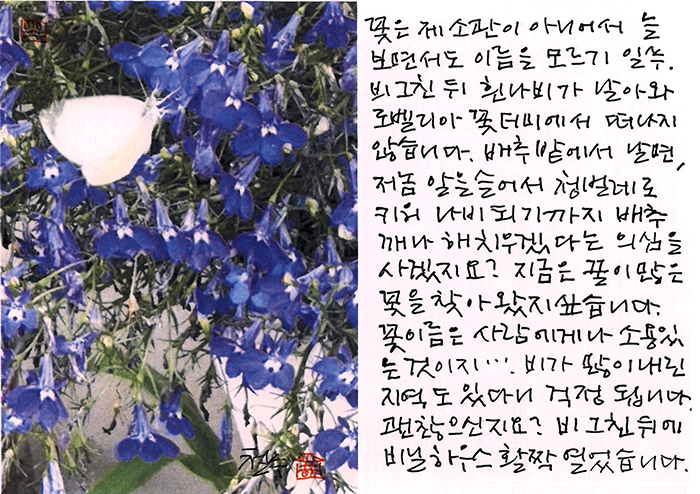 꽃은 제 소관이 아니어서 늘
보면서도 이름을 모르기 일쑤.
비 그친 뒤 흰나비가 날아와
로벨리아 꽃더미에서 떠나지
않습니다. 배추밭에서 날면,
저놈 알을 슬어서 청벌레로
키워 나비되기까지 배추
깨나 해치우겠다는 의심을
사겠지요? 지금은 꿀이 많은
꽃을 찾아 왔지 싶습니다.
꽃이름은 사람에게나 소용있
는 것이지…. 비가 많이 내린
지역도 있다니 걱정 됩니다.
괜찮으신지요? 비 그친 뒤에
비닐하우스 활짝 열었습니다.